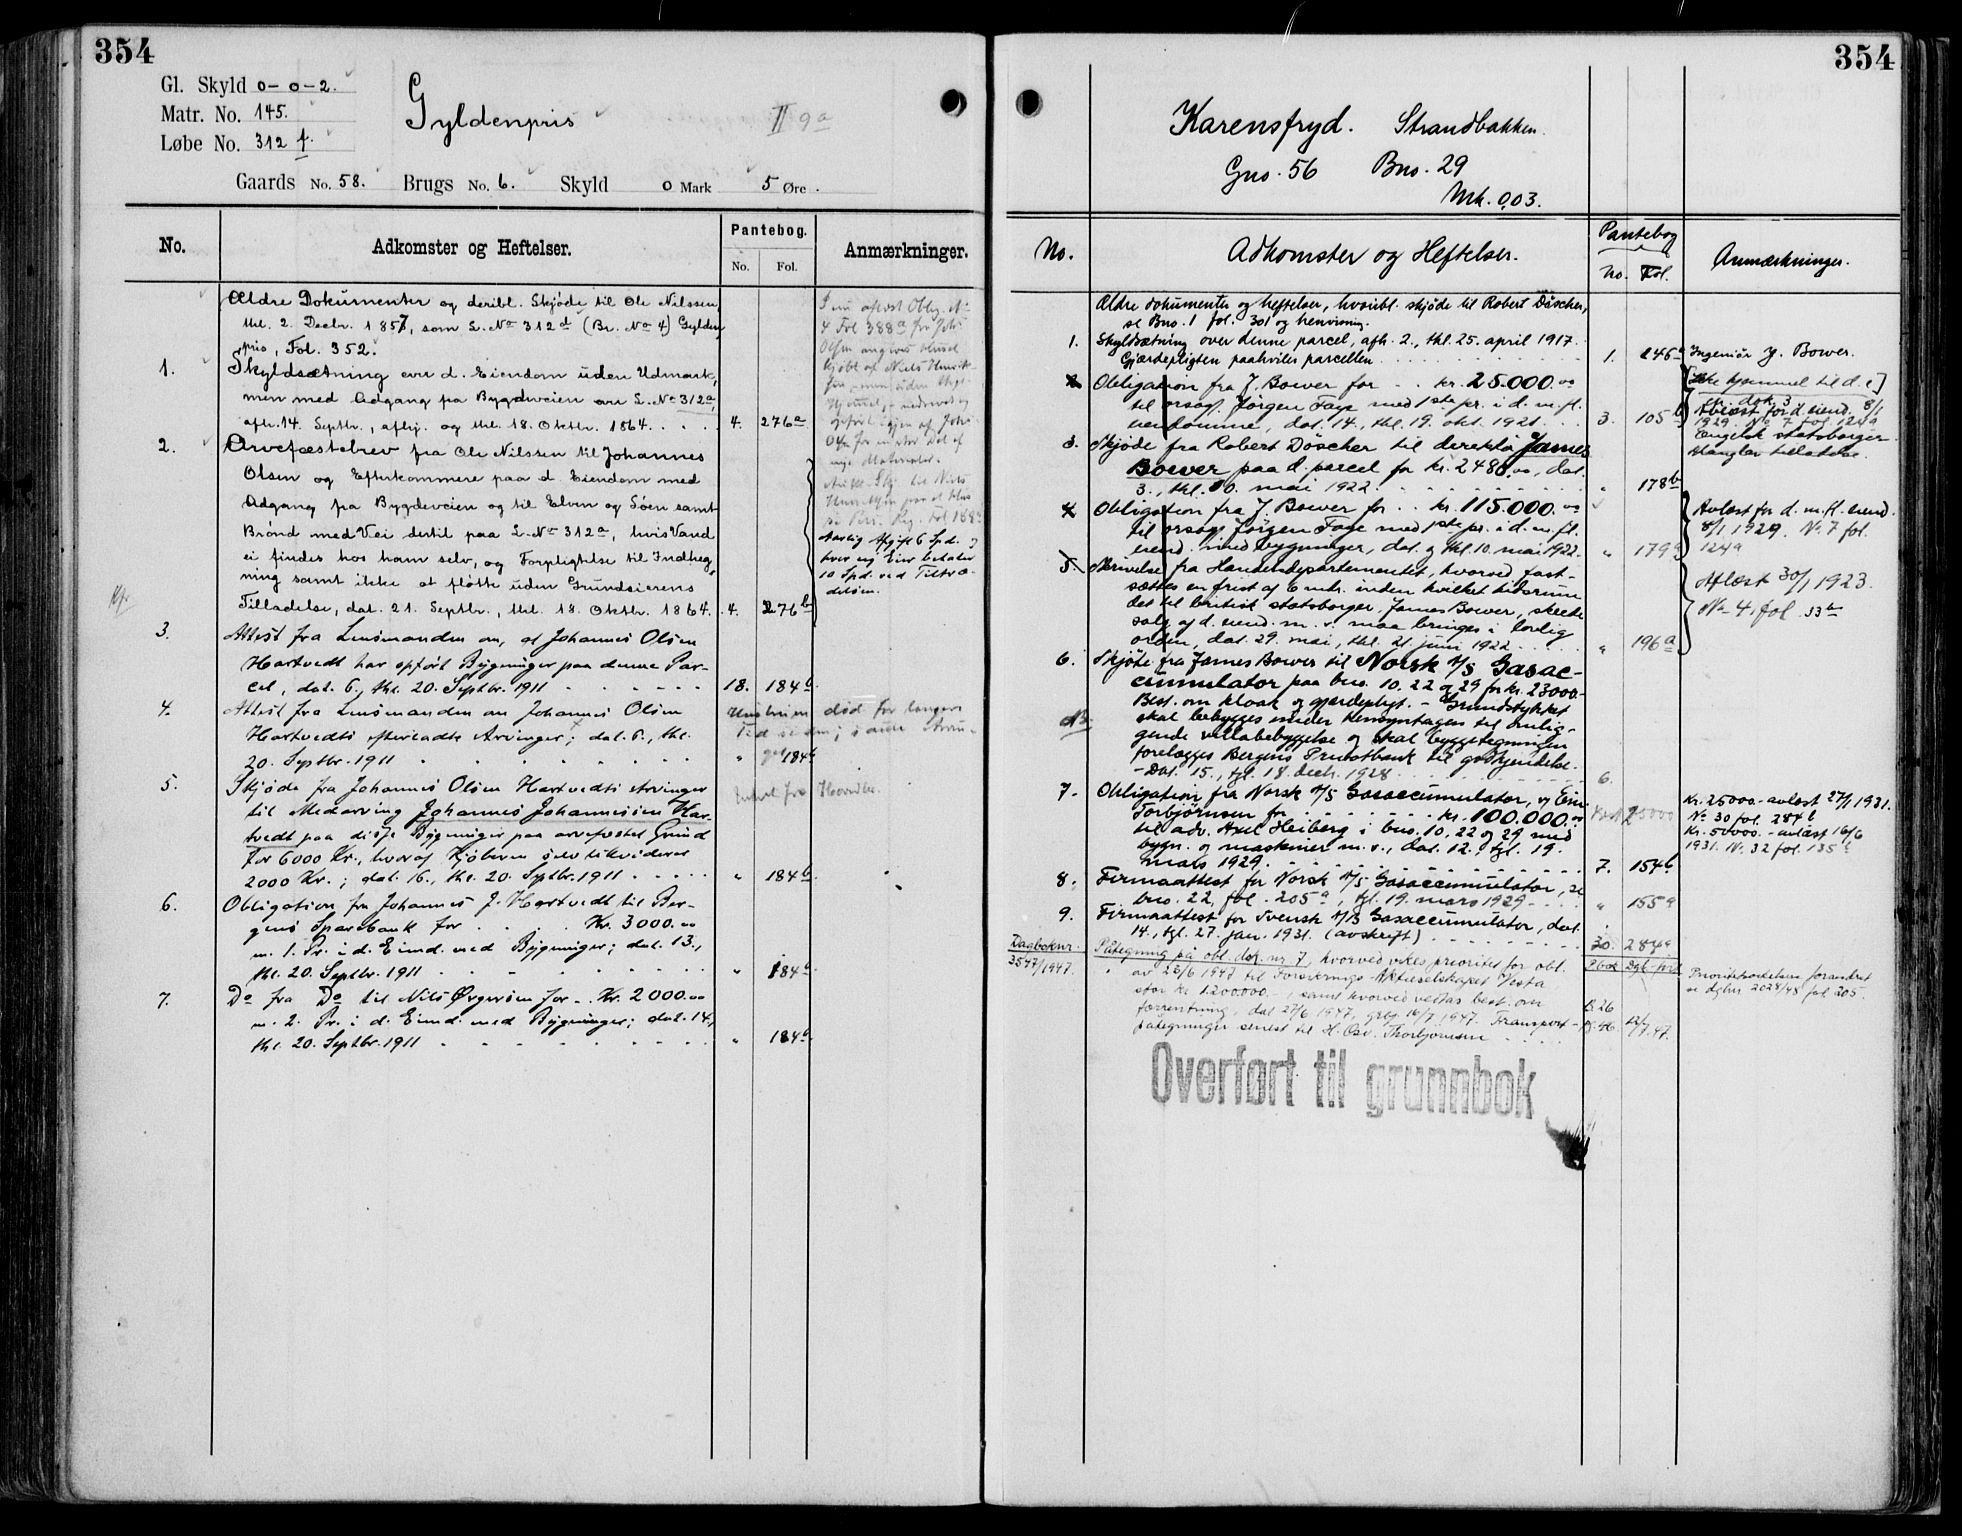 354
Gl. Skyld 0-0-2.
Matr. No. 145.
Løbe No. 312 f.
Gyldenpris
II 9a
Gaards No. 58. Brugs No. 6. Skyld 0 Mark 5 Øre.
No. Adkomster og Heftelser. Pantebog. Anmærkninger.
No. Fol.
Ældre Dokumenter og deribl. Skjøde til Ole Nilssen,
thl. 2. Decbr. 1857, som L. No 312d (Br. No 4) Gylden
pris, Fol. 352.
1. Skyldsætning over d. Eiendom uden Udmark,
men med Adgang paa Bygdeveien over L. No 312a,
afh. 14. Septbr., afhj. og thl. 18. Oktbr. 1864. 4. 276a
2. Arvefæstebrev fra Ole Nilssen til Johannes
Olsen og Efterkommere paa d. Eiendom med
Adgang paa Bygdeveien og til Elven og Søen samt
Brønd med Vei dertil paa L. No 312a, hvis Vand
ei findes hos ham selv, og Forpligtelse til Indheg
ning samt ikke at fløtte uden Grundeierens
Tilladelse, dat. 21. Septbr., thl. 18. Oktbr. 1864. 4. 276b
Aarlig Afgift 6 Spd. og
hver ny Eier betaler
10 Spd. ved Tiltræ-
delsen.
3. Attest fra Lensmanden om, at Johannes Olsen
Hartvedt har opført Bygninger paa denne Par-
cel, dat. 6., thl. 20. Septbr. 1911 18. 184b
4. Attest fra Lensmanden om Johannes Olsen
Hartvedts efterladte Arvinger; dat. 6., thl.
20. Septbr. 1911 " 184b
Hustruen død for længere
Tid siden;
5. Skjøde fra Johannes Olsen Hartvedts Arvinger
til Medarving Johannes Johannessen Har-
tvedt paa disse Bygninger paa arvefæstet Grund
for 6000 Kr., hvoraf Kjøberen selv likviderer
2000 Kr.; dat. 16., thl. 20. Septbr. 1911 " 184b
6. Obligation fra Johannes J. Hartvedt til Ber-
gens Sparebank for Kr. 3000.00
m. 1. Pr. i d. Eiend. med Bygninger; dat. 13.,
thl. 20. Septbr. 1911 " 184b
7. Do fra Do til Nils Ørgersen for Kr. 2000.00
m. 2. Pr. i d. Eiend. med Bygninger; dat. 14.,
thl. 20. Septbr. 1911 " 184b
354
Karensfryd. Strandbakken.
Gno. 56 Bno. 29
Mk. 0,03.
No. Adkomster og Heftelser. Pantebog Anmærkninger.
No. Fol.
Ældre dokumenter og heftelser, hvoribl. skjøde til Robert Döscher,
se Bno. 1 fol. 301 og henvisning.
1. Skyldsætning over denne parcel, afh. 2., thl. 25. april 1917.
Gjærdepligten paahviler parcellen 1. 246a
Ingeniør J. Bower.
2. Obligation fra J. Bower for kr. 25.000.00
til orsagf. Jørgen Faye med 1ste pr. i d. m. fl.
eiendomme, dat. 14., thl. 19. okt. 1921. 3. 105b
[Ikke hjemmel til d. e]
cfr. dok. 3
Avlæst for d. eiend. 8/1
1929. No 7 fol. 124a
3. Skjøde fra Robert Döscher til direktør James
Bower paa d. parcel for kr. 2480.00, dat.
3., thl. 10. mai 1922. " 178b
Engelsk statsborger.
Mangler tilladelse.
4. Obligation fra J. Bower for kr. 115.000.00
til orsagf. Jørgen Faye med 1ste pr. i d. m. fl.
eiend. med bygninger, dat. og thl. 10. mai 1922. " 179a
Avlæst for d. m. fl. eiend.
8/1 1929. No 7 fol.
124a
5. Skrivelse fra Handelsdepartementet, hvorved fast-
sættes en frist af 6 mdr. inden hvilket tidsrum
det til britisk statsborger James Bower, skeede
salg af d. eiend. m. v. maa bringes i lovlig
orden, dat. 29. mai, thl. 21. juni 1922 " 196a
Aflæst 30/1 1923.
No 4, fol. 33b
6. Skjøte fra James Bower til Norsk A/S Gasac-
cumulator paa bno. 10, 22 og 29 for kr. 23000.-
Best. om kloak og gjerdepligt. - Grundstykket
NB. skal bebygges under hensyntagen til omlig-
gende villabebyggelse og skal byggetegningen
forelægges Bergens Privatbank til godkjendelse.
- Dat. 15., tgl. 18. decbr. 1928 6.
7. Obligation fra Norsk A/S Gasaccumulator, og Einar
Torbjørnsen for kr. 100.000.00
til adv. Axel Heiberg i bno. 10, 22 og 29 med
bygn. og maskiner m. v., dat. 12., tgl. 19.
mars 1929. 7. 154b
Kr. 25000.- avlæst 27/1 1931.
No 30 fol. 284b
Kr. 50000.- avlæst 16/6
1931. No. 32 fol. 135
8. Firmaattest for Norsk A/S Gasaccumulator, se
bno. 22, fol. 205a, tgl. 19. mars 1929 " 155a
9. Firmaattest for Svensk A/B Gasaccumulator, dat.
14., tgl. 27. jan. 1931. (avskrift) 30. 284a
Dagboknr.
3547/1947.
Påtegning på obl. dok. nr. 7, hvorved vikes prioritet for obl.
av 25/6 1947 til Forsikrings-Aktieselskapet Vesta
stor kr. 1.200.000.-, samt hvorved vedtas best. om
forrentning, dat 27/6 1947, grbg. 16/7 1947. Transport-
påtegninger senest til H. Osv. Thorbjørnsen
Prioritetsvikelsen forandret
se dgbnr 2028/48 fol 205.
Overført til grunnbok